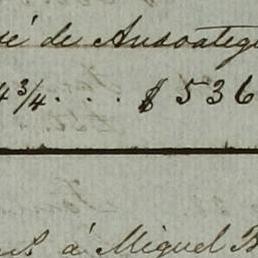 sé de Ansoategui
4 3/4 . . . $ 536
á Miguel B